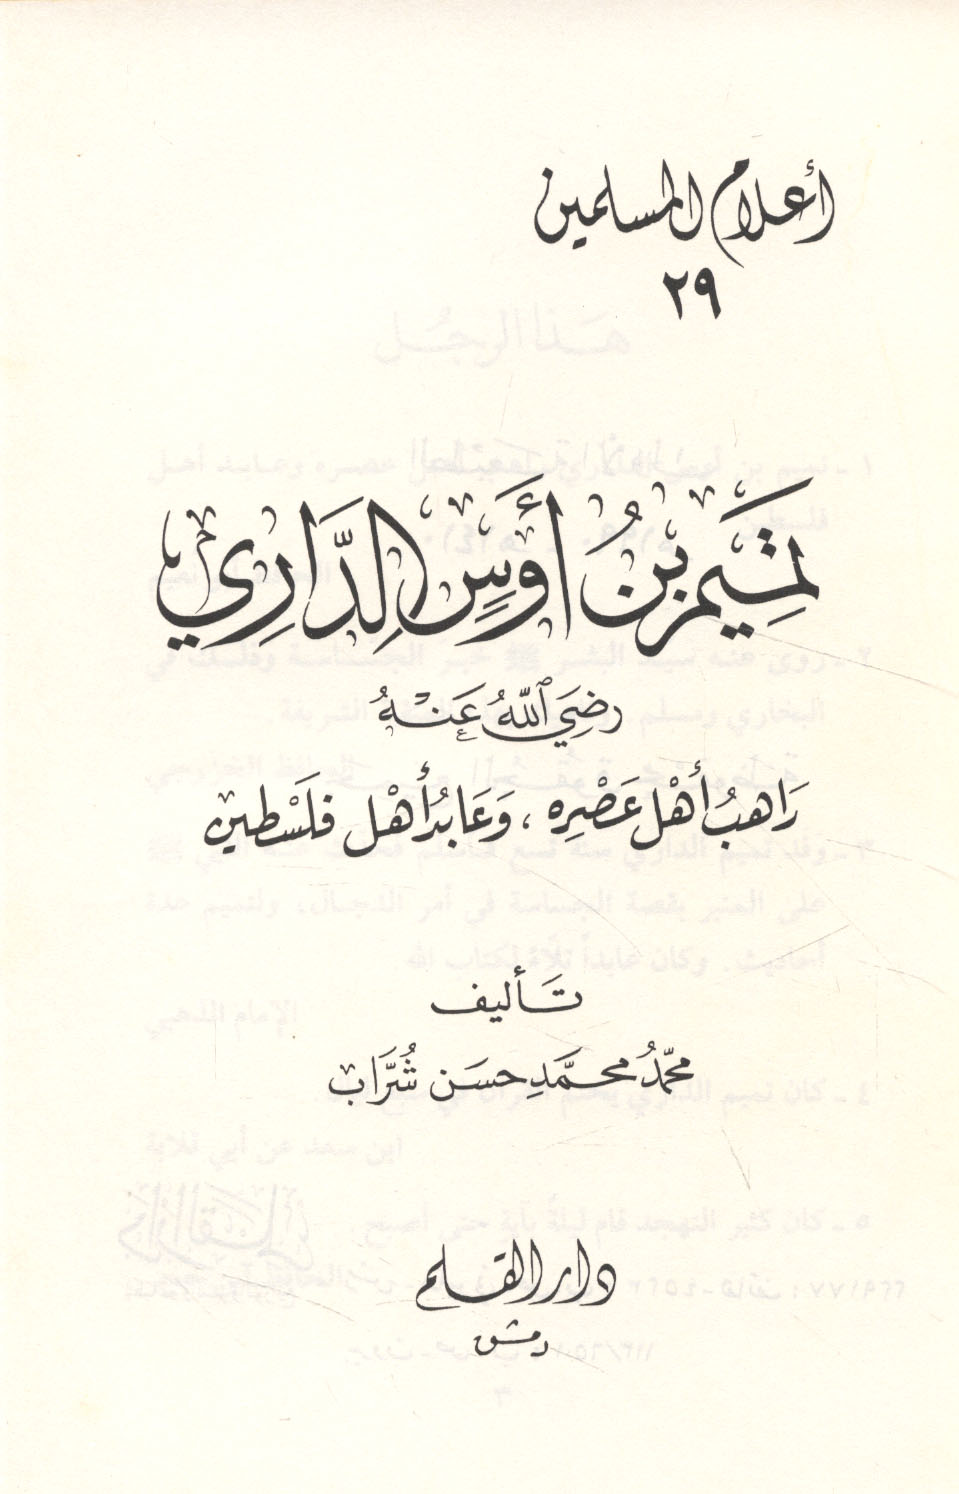 أعلام المسلمين
٢٩
تَمِيمُ بنُ أَوسٍ الدَّارِي
رَضِيَ اللهُ عَنهُ
رَاهبُ أَهْل عَصْرِه ، وَعَابدُ أَهْل فلَسْطين
تَأليف
محمّدُ محمَّد حسَن شُرَّاب
دار القلم
دمشق